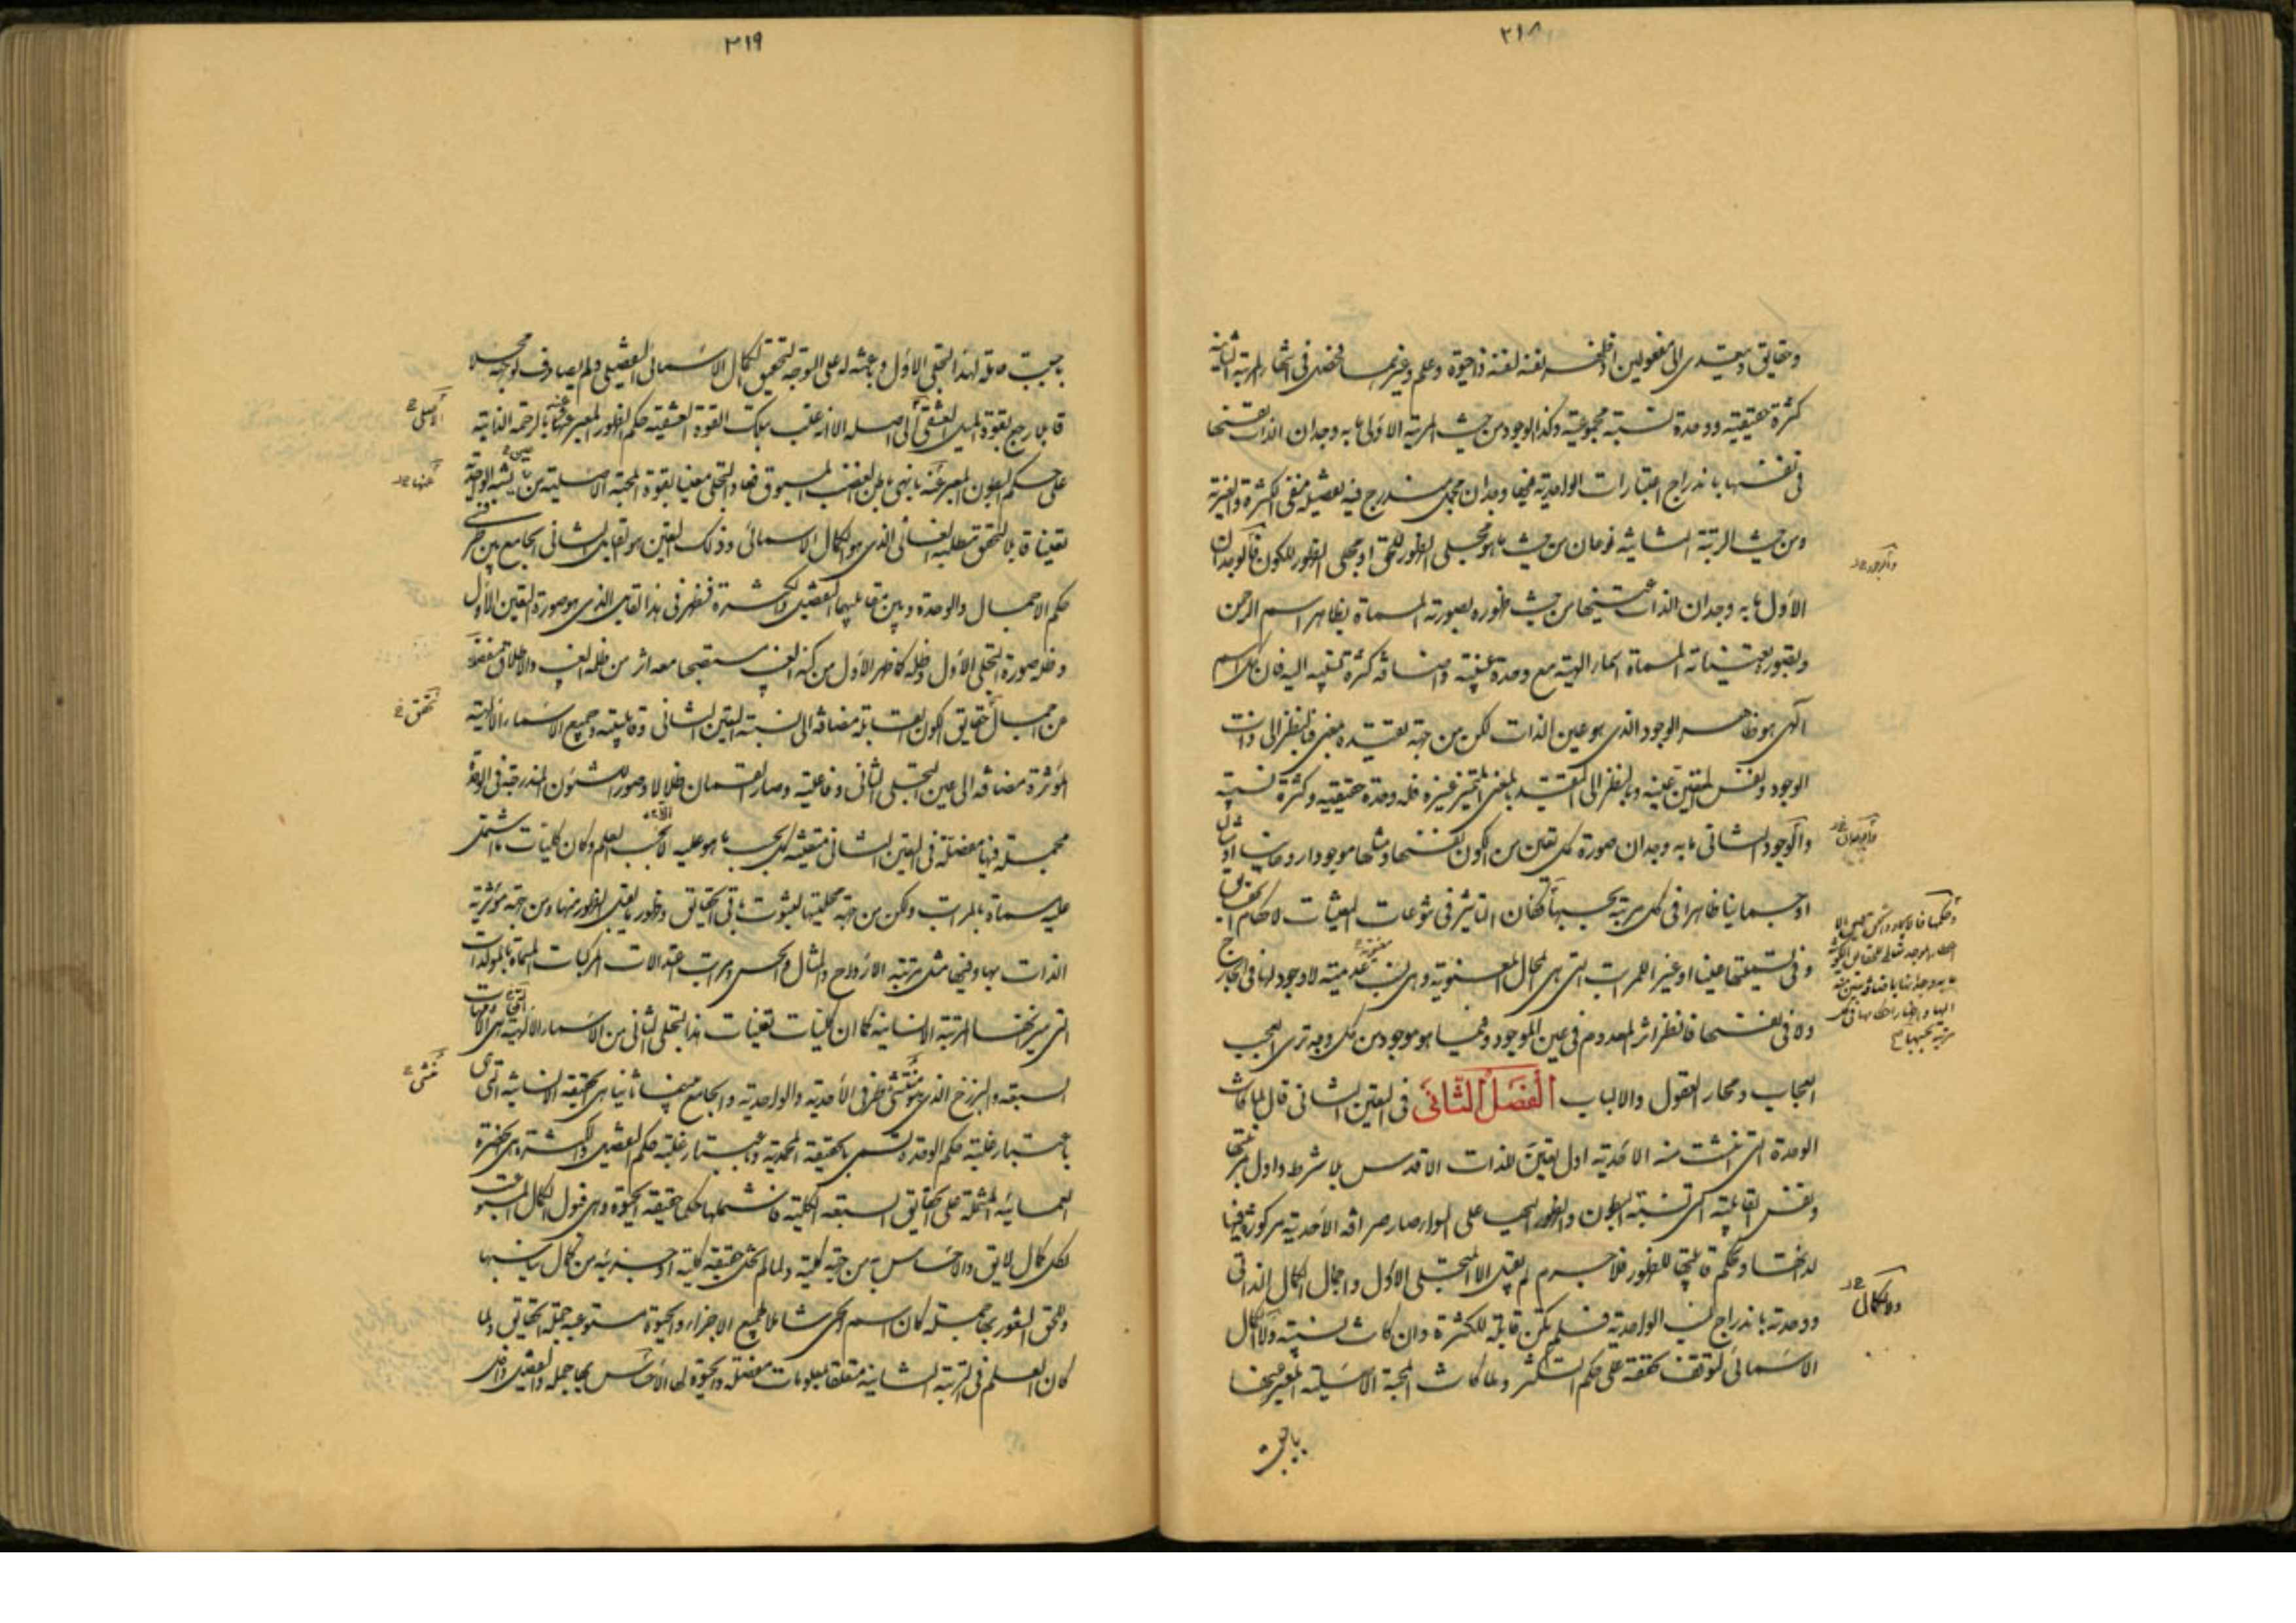 ٢١٨
وحقايق ويتعدى الى مفعولين اذ ظهر لنفسه نفسه ذا حيوة وعلم وغيرهما فحصل في المرتبة الثانية
كثرة حقيقية ووحدة نسبية مجموعية وكذا الوجود من حيث المرتبة الاولى ما به وجدان الذات نفسها
في نفسها باندراج اعتبارات الواحدية فيها وجدان مجمل مندرج فيه تفصيله منفى الكثرة والغيرية
ومن حيث الرتبة الثانية نوعان من حيث ما هو مجلى الظهور للحق او مجلى الظهور للكون فالوجدان
الاول ما به وجدان الذات عينها من حيث ظهوره بصورته المسماة بظاهر اسم الرحمن
وبصور تعيناته المسماة اسماء الهية مع وحدة عينية واضافة كثرة نسبية اليه فان كل اسم
الهى هو ظاهر الوجود الذى هو عين الذات لكن من جهة تقيده بمعنى فبالنظر الى ذات
الوجود ونفس المتعين عينه وبالنظر الى التقيد بالمعنى المتميز غيره فله وحدة حقيقية وكثرة نسبية
والوجود الثانى ما به وجدان صورة كل تعين من الكون نفسها ومثلها موجودا روحانيا او مثاليا
او جسمانيا ظاهرا في كل مرتبة بحسبها فكان التاثير في تنوعات التعينات لاحكام الحقايق
وفى تسميتها عينا او غيرا للمراتب التى هى المحال المعنوية وهى نسب عدمية لا وجود لها في الخارج
ولا في نفسها فانظر اثر المعدوم في عين الموجود وفيما هو موجود من كل وجه ترى العجب
العجاب ومحار العقول والالباب الفصل الثانى في التعين الثانى قال لما كانت
الوحدة التى انتشت منه الاحدية اول تعين للذات الاقدس بلا شرط واول رتبتها
ونفس القابلية التى نسبة البطون والظهور اليها على السواء صار صرافة الاحدية مركوزا فيها
لذاتها وحكم قابليتها للظهور فلا جرم لم يقبل الا التجلى الاول واجمال الكمال الذاتى
ووحدته باندراج نسب الواحدية فلم يكن قابلة للكثرة وان كانت نسبية والكمال
الاسمائى لتوقف تحققه على حكم التكثر ولما كانت المحبة الاصلية المعبر عنها
باحببت
والوجود
والوجدان
والكمال
٢١٩
باحببت حاملة لهذا التجلى الاول وباعثة له على التوجه لتحقيق الكمال الاسمائى التفصيلى ولم يصادف لتوجهه محلا
قابلا رجع بقوة الميل العشقى الى اصله الا انه غلب بتلك القوة العشقية حكم الظهور المعبر عنها بالرحمة الذاتية
على حكم البطون المعبر عنه بانتهى باطن الغضب المسبوق فعاد التجلى متعينا بقوة المحبة الاصلية من نسبة الواحدية
تعينا قابلا لتحقق مطلبه الغائى الذى هو الكمال الاسمائى وذلك التعين هو القابل الثانى الجامع بين طرفى
حكم الاجمال والوحدة وبين مقابليهما التفصيل والكثرة فظهر في هذا القابل الذى هو صورة التعين الاول
وظله صورة التجلى الاول وظله كما ظهر الاول من كنه الغيب مستصحبا معه اثر من ظلمة الغيب والاطلاق
جميع حقايق الكون القابلة مضافة الى نسبة التعين الثانى وقابليته وجميع الاسماء الالهية
المؤثرة مضافة الى عين التجلى الثانى وفاعليته وصار القسمان ظلالا وصورا للشئون المندرجة في الوحدة
مجملة فيها مفصلة في التعين الثانى متعينة كل بحسب ما هو عليه لا بحسب العلم وكان كليات ما اشتمل
عليه مسماة بالمراتب ولكن من جهة محليتها لثبوت باقى الحقايق وظهور ما يقبل الظهور منها ومن جهة مؤثرية
الذات بها وفيها مثل مرتبة الارواح والمثال والحس ومراتب اعتدالات المركبات المسماة بالمولدات
التى ميزتها المرتبة الانسانية كما ان كليات تعينات هذا التجلى الثانى من الاسماء الالهية هى الامهات
السبعة والبرزخ الذى هو منتشئ طرفى الاحدية والواحدية والجامع بينهما ثانيا هى الحقيقة الانسانية التى
باعتبار غلبة حكم الوحدة تسمى بالحقيقة المحمدية وباعتبار غلبة حكم التفصيل والكثرة هى الحضرة
العمائية المشتملة على الحقايق السبعة الكلية فاشملها حكما حقيقة الحيوة وهى قبول الكمال المستوعب
لكل كمال لايق والاحساس به من جهة كلية ولما لم تخل حقيقة كلية او جزئية من كمال يناسبها
وتحقق الشعور بها جملة كان اسم الحى شاملا لجميع الاجزاء والحيوة مستوعبة جملة الحقايق ولما
كان العلم في الرتبة الثانية متعلقا بمعلومات مفصلة والحيوة لها الاحساس بها جملة والتفصيل داخل
الاصلى
عنها
تحقق
منشئ